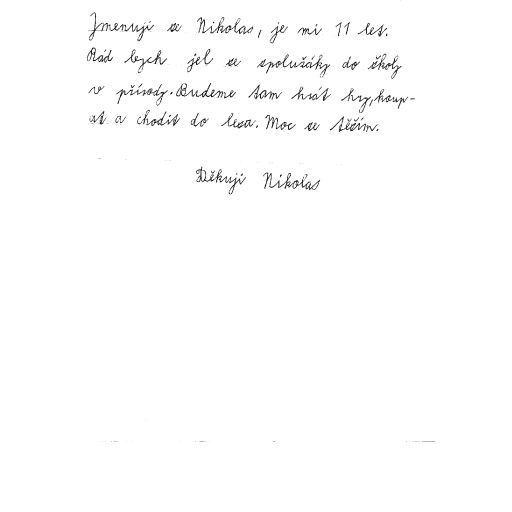 Jmenuji se Nikolas, je mi 11 let.
Rád bych jel se spolužáky do školy
v přírody. Budeme tam hrát hry, koup-
at a chodit do lesa. Moc se těším.
Děkuji Nikolas